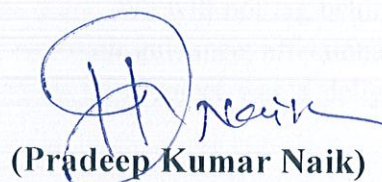 Naik
(Pradeep Kumar Naik)